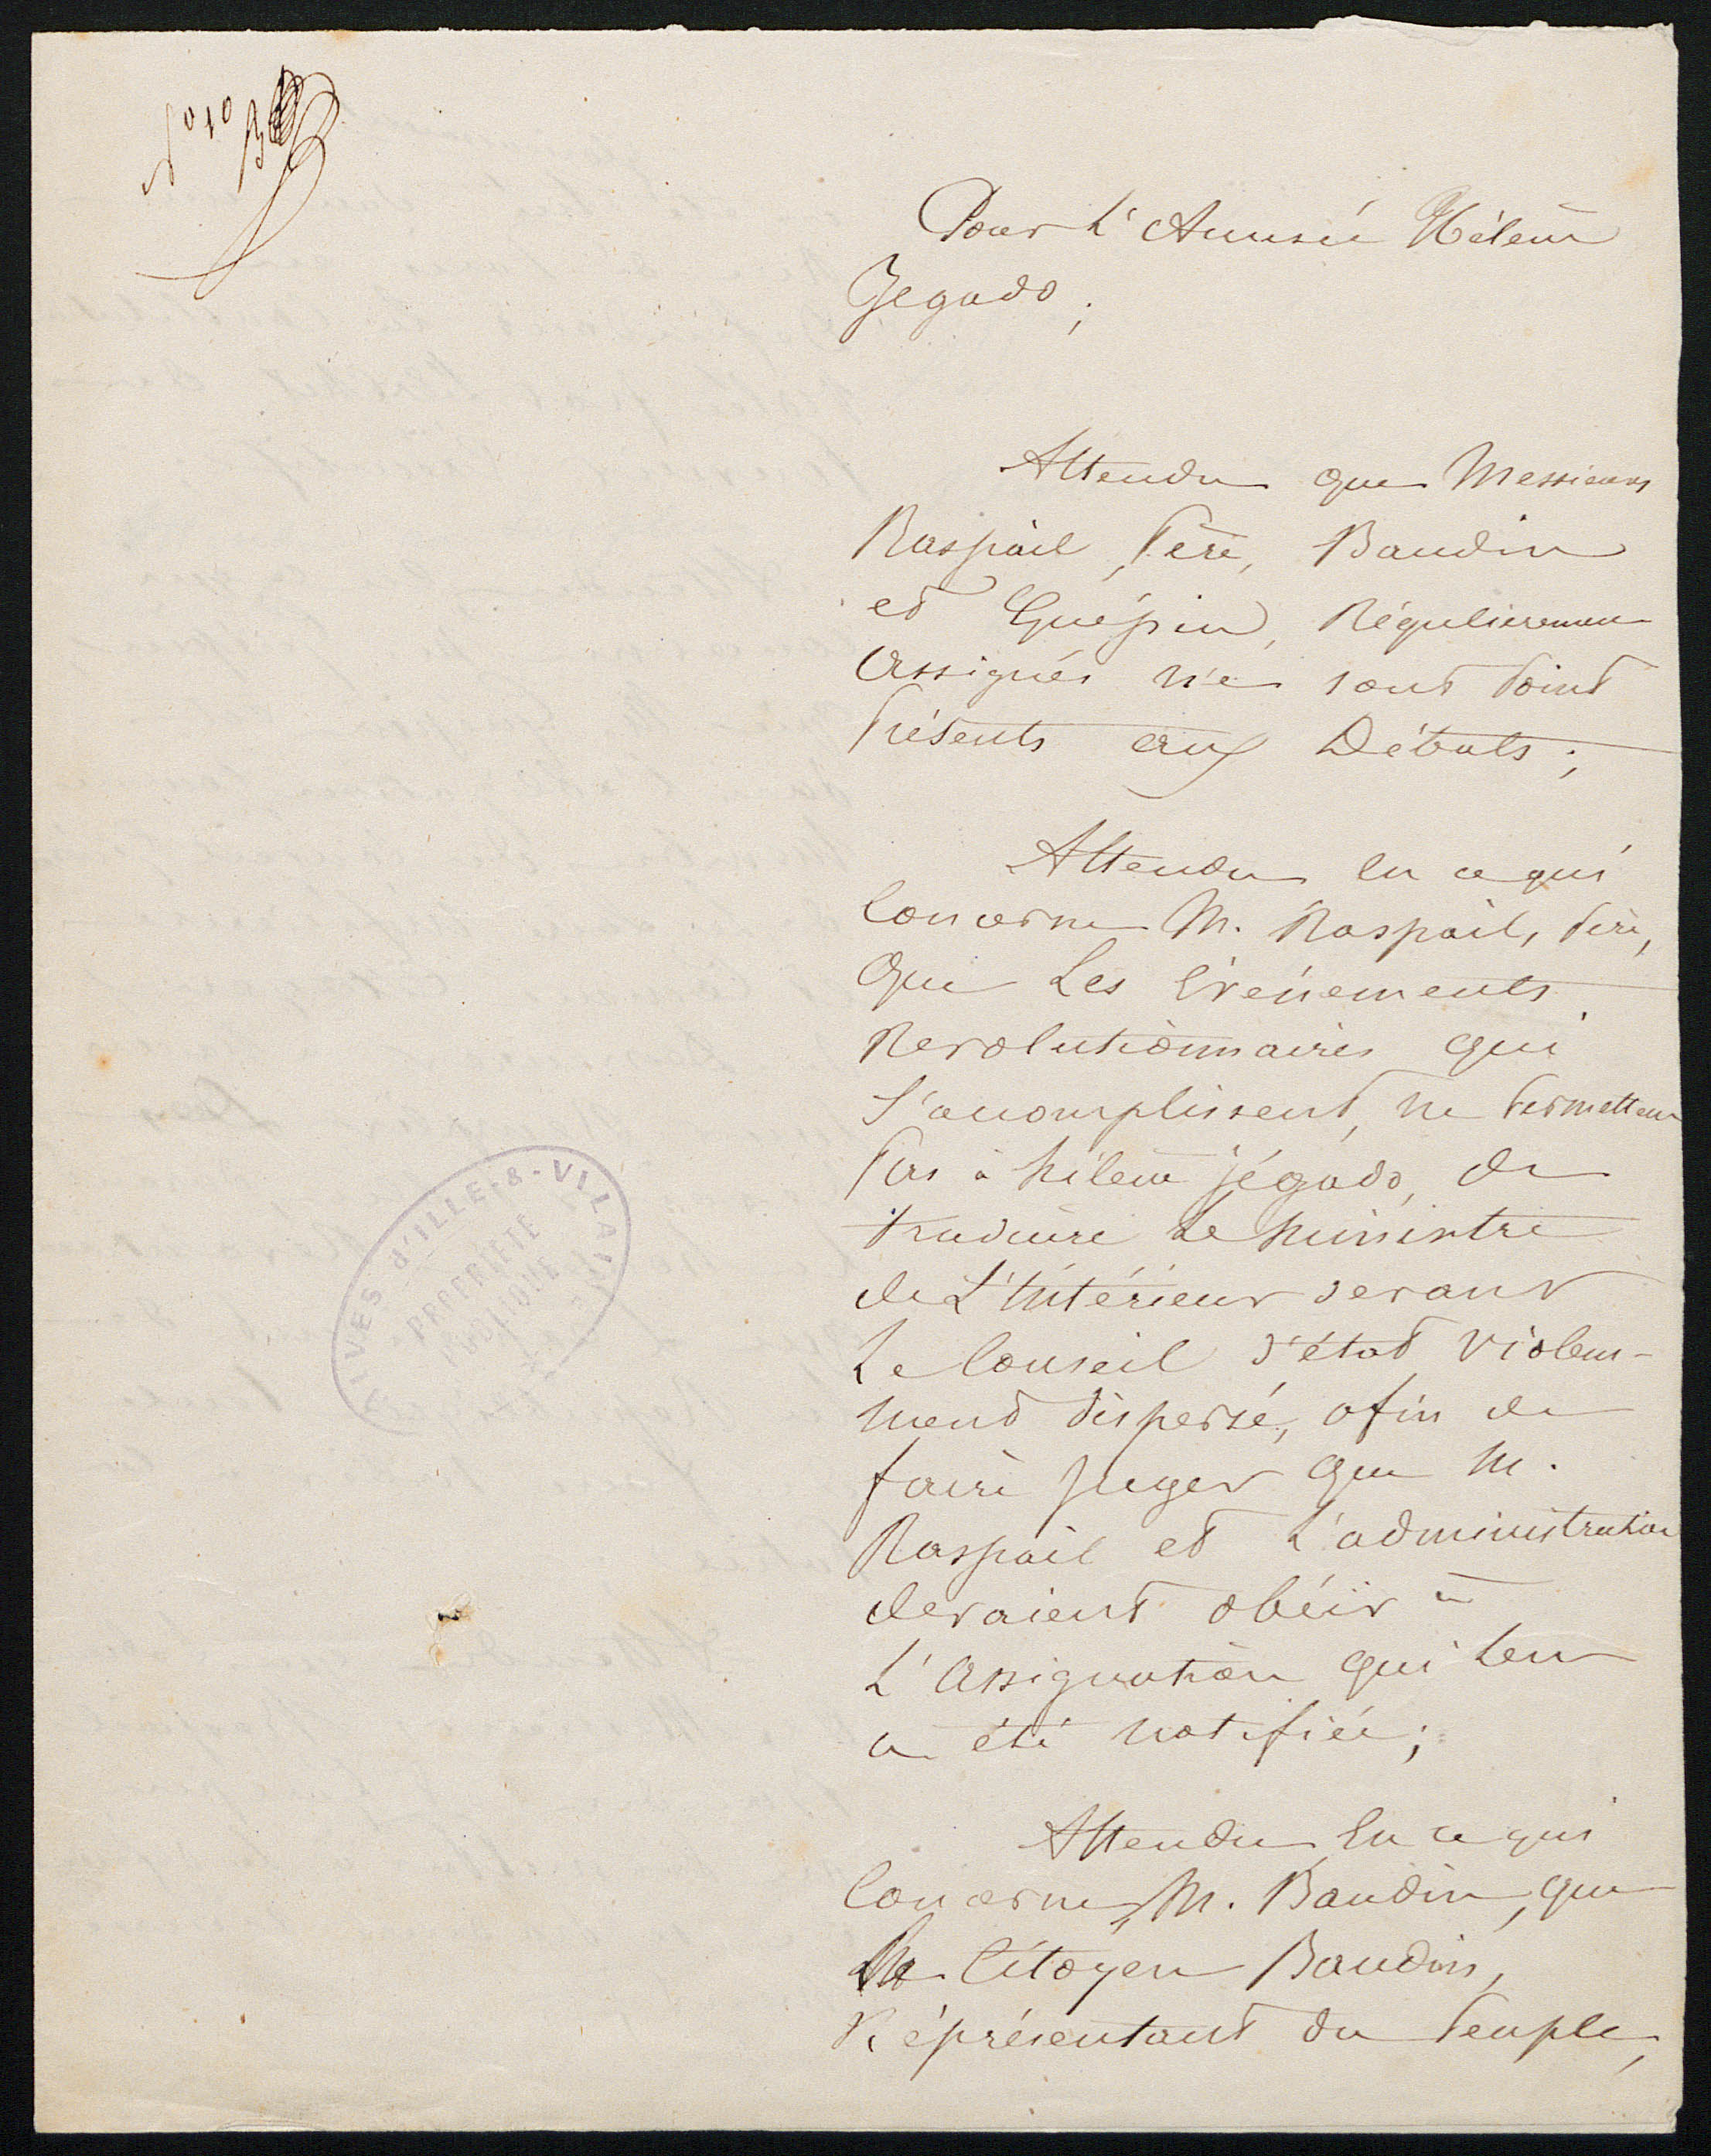 N° 10
Pour L'Accusée Hélène
Jegado;
Attendu que Messieurs
Raspail, Père, Baudin
et Guépin, Régulièrement
assignés ne sont Point
Présents aux Débats;
Attendu En ce qui
Concerne M. Raspail, Père,
Que Les Evénements
Revolutionnaires qui
S'accomplissent, ne Permettent
Pas à hélène jégado, de
traduire Le Ministre
de L'intérieur devant
Le Conseil d'état violem-
ment dispersé, afin de
faire juger que M.
Raspail et L'administration
devaient obéir à
L'assignation qui leur
a été notifiée;
Attendu, En ce qui
Concerne, M. Baudin, que
Le Citoyen Baudin,
Réprésentant du Peuple,
ARCHIVES d'ILLE-&-VILAINE
PROPRIÉTÉ
PUBLIQUE